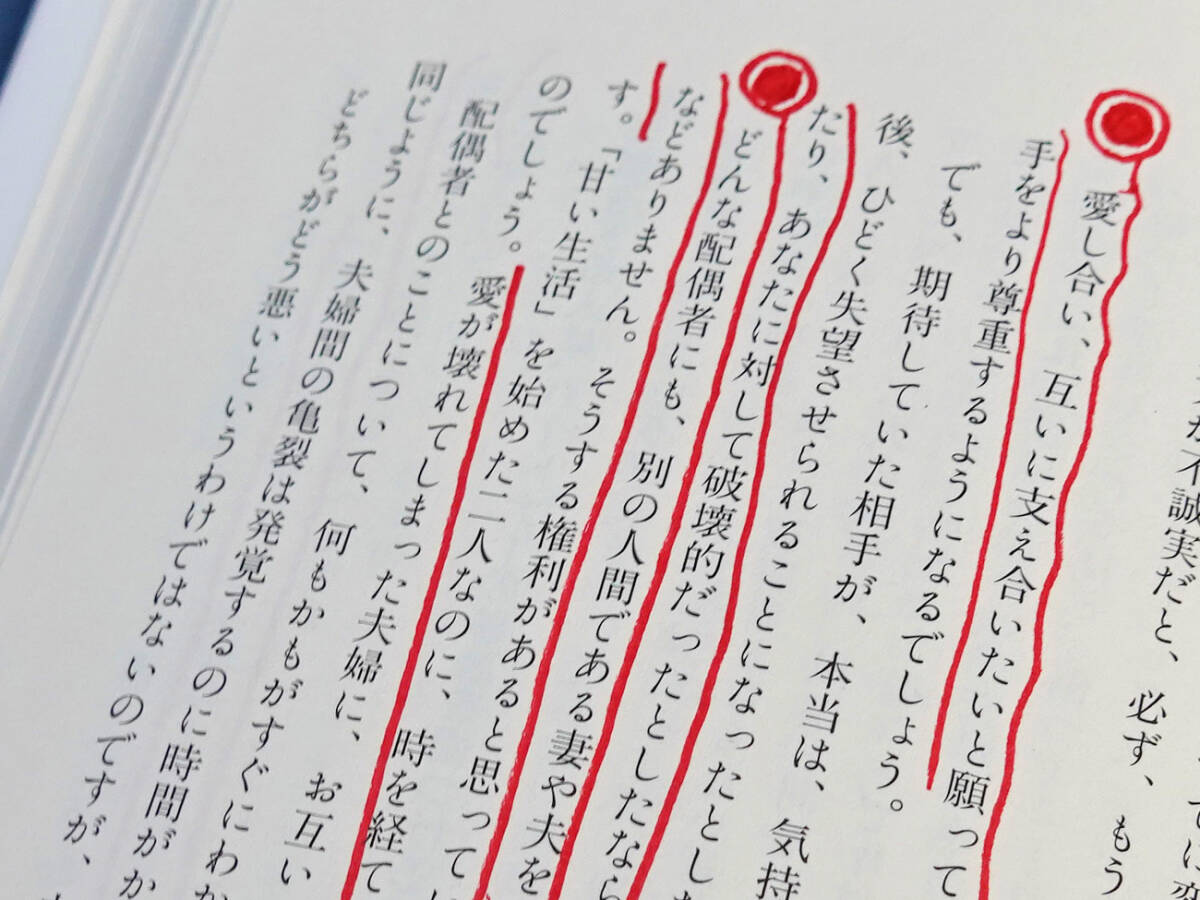 が不誠実だと、必ず、もう
愛し合い、互いに支え合いたいと願って
手をより尊重するようになるでしょう。
でも、期待していた相手が、本当は、気持
後、ひどく失望させられることになったとした
たり、あなたに対して破壊的だったとしたなら
どんな配偶者にも、別の人間である妻や夫を
などありません。そうする権利があると思って
す。「甘い生活」を始めた二人なのに、時を経て
のでしょう。愛が壊れてしまった夫婦に、お互い
配偶者とのことについて、何もかもがすぐにわか
同じように、夫婦間の亀裂は発覚するのに時間がか
どちらがどう悪いというわけではないのですが、